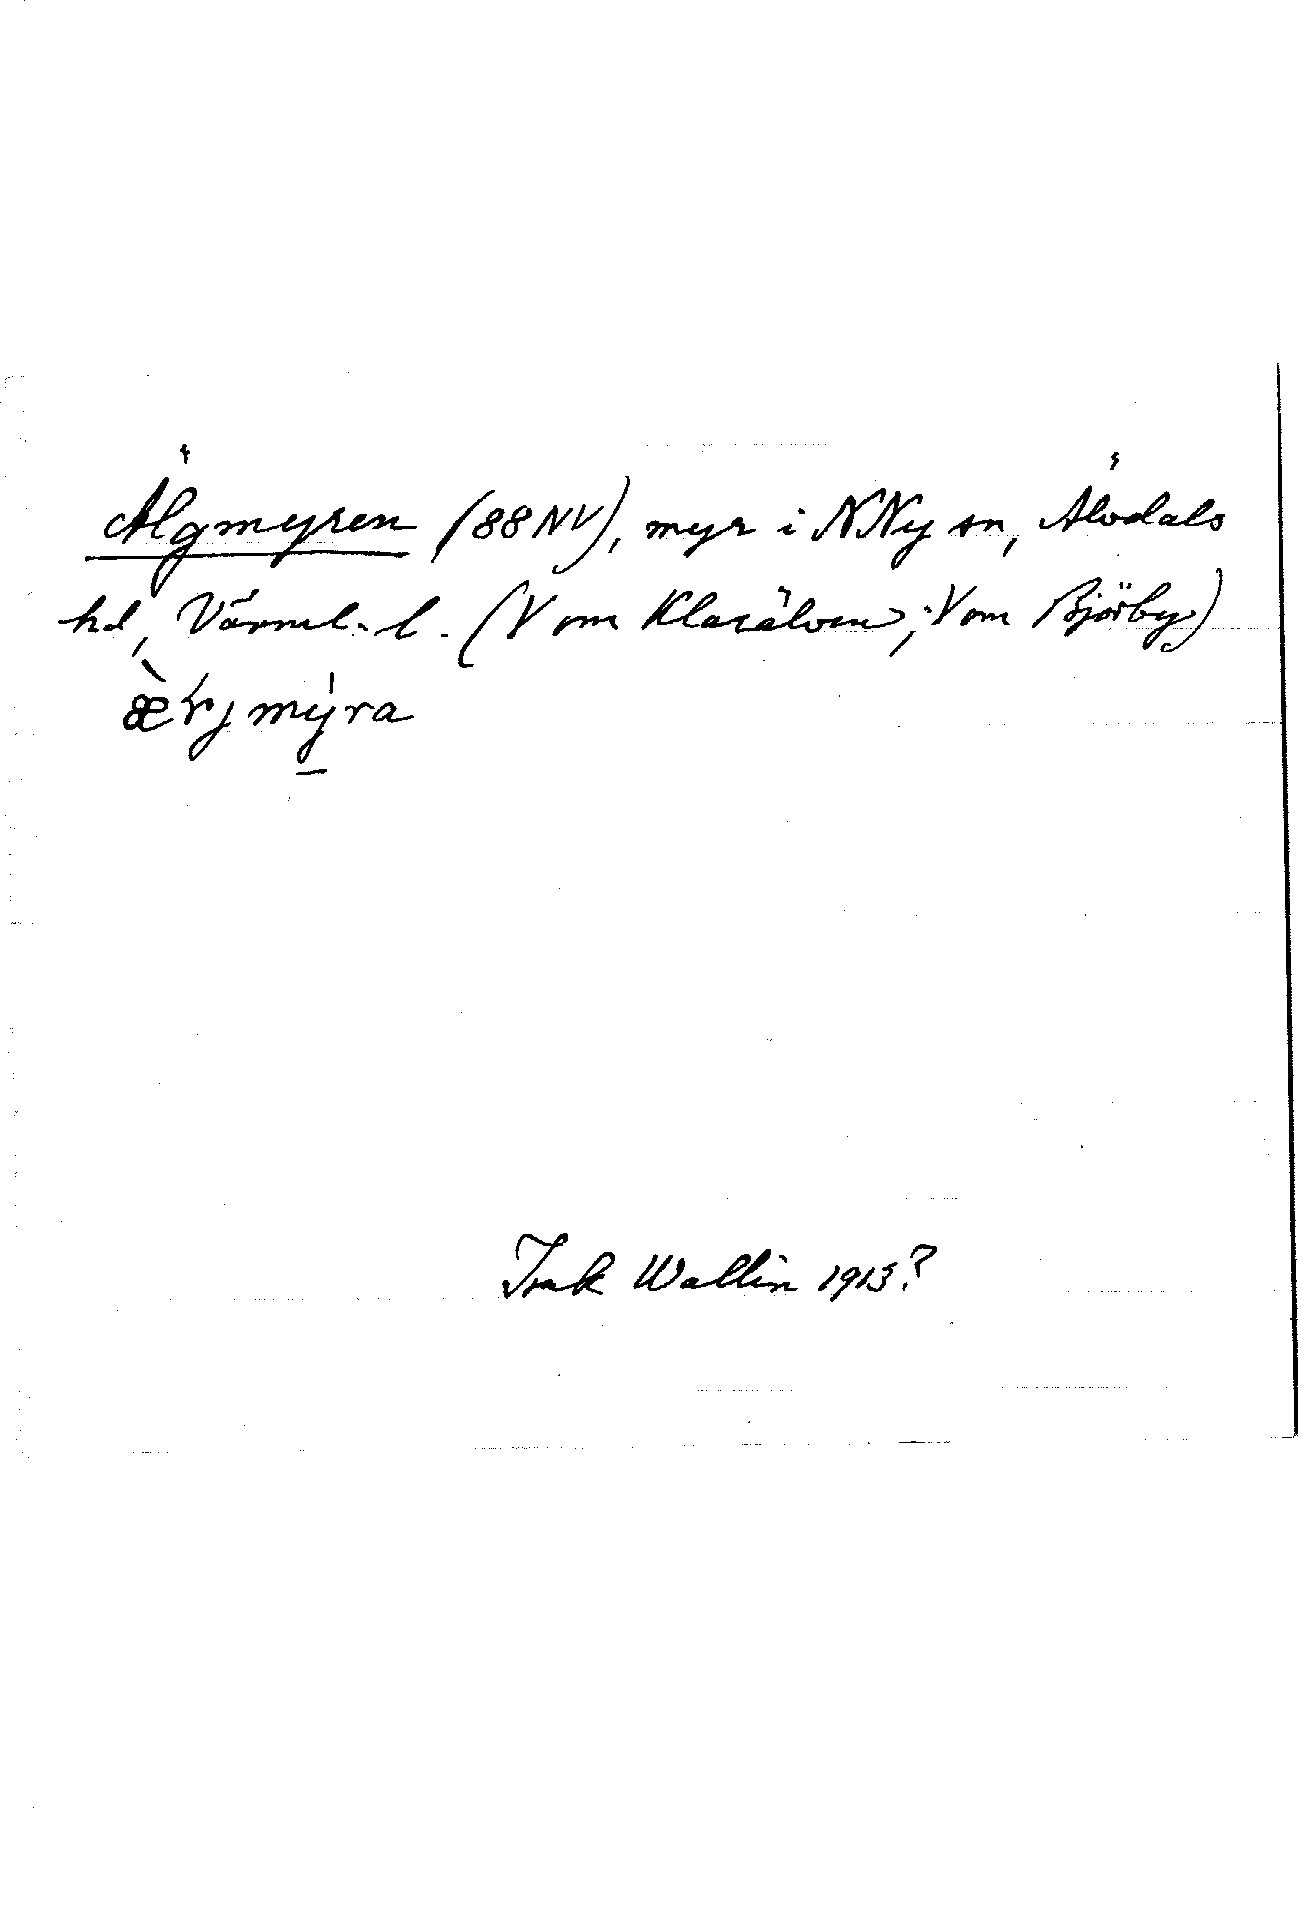 Älgmyren (88NV), myr i NNy sn, Älvdals
hd, Värml. l. (V om Klarälven, V om Björby)
mýra
Isak Wallin 1913?